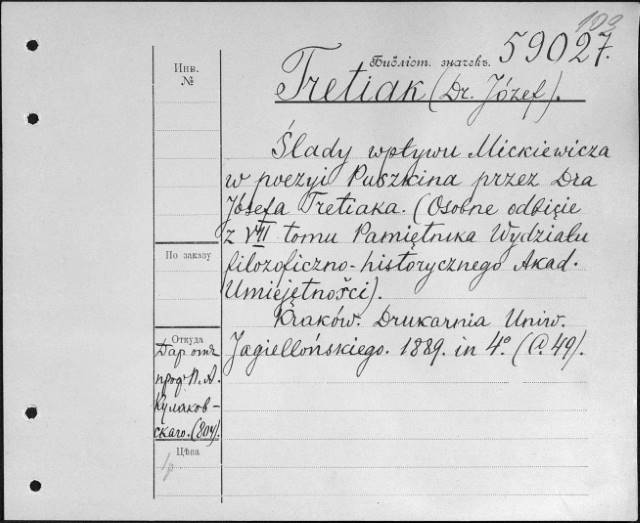 109
Библіот. значекъ. 59027.
Инв.
№
Tretiak (Dr. Józef).
Ślady wpływu Mickiewicza
w poezyi Puszkina przez Dra
Józefa Tretiaka. (Osobne odbicie
z VIII tomu Pamiętnika Wydziału
filozoficzno-historycznego Akad.
Umiejętności).
Kraków. Drukarnia Uniw.
Jagiellońskiego. 1889. in 4º. (C. 49).
По заказу
Откуда
Даръ отъ
проф. П. А.
Кулаков-
скаго. (804).
Цѣна
1р